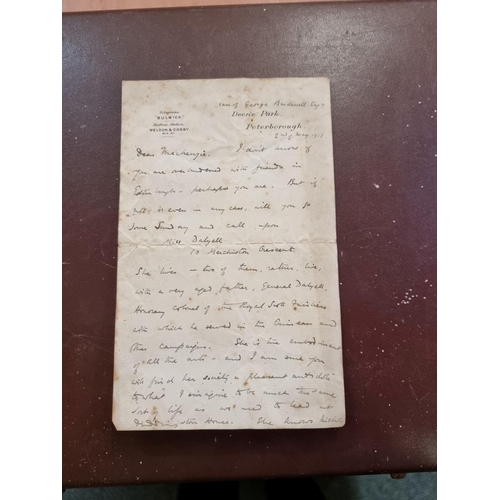 Telegrams
"BULWICK"
Railway Station
WELDON & CORBY
care of George Brudenell Esqre
Deene Park,
Peterborough.
2nd May 1915
Dear Mackenzie. I don't know if
you are overburdened with friends in
Edinburgh - perhaps you are. But if
not, or even in any case, will you go
some Sunday and call upon
Miss Dalyell
13 Merchiston Crescent
She lives - two of them, rather, live,
with a very aged father, General Dalyell,
Honorary colonel of the Royal Scots Fusiliers
with which he served in the Crimean and
other campaigns. She is the embodiment
of all the arts - and I am sure you
will find her society a pleasant antidote
to what I imagine to be much the same
sort of life as we used to lead at
Duddingston House. She knows